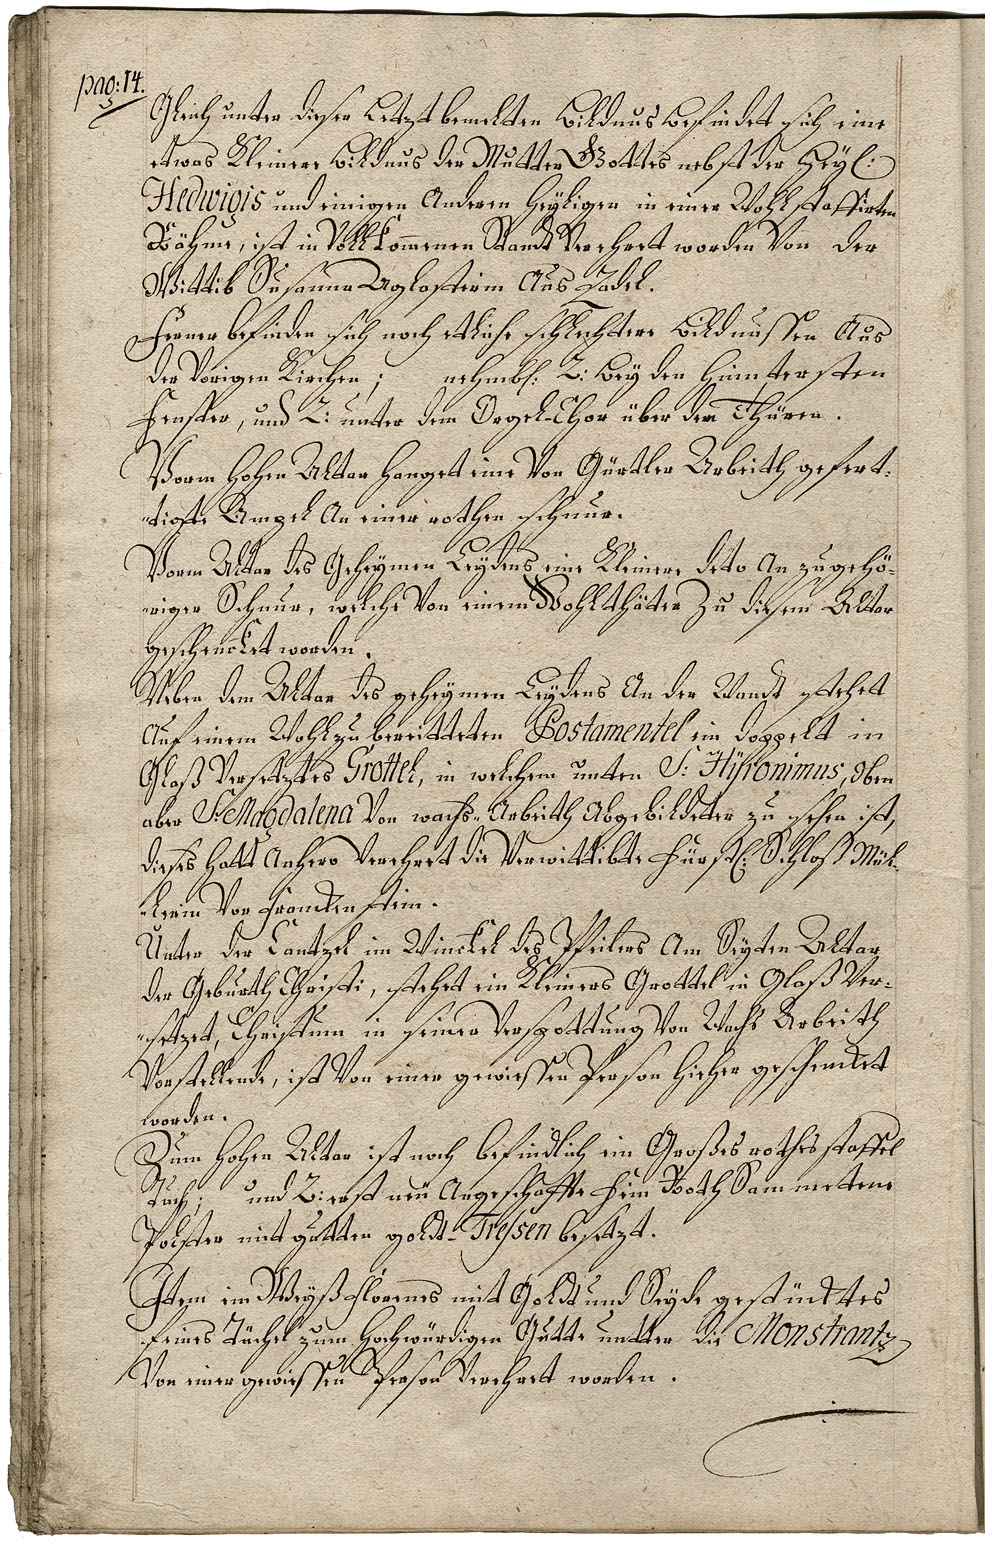 pag: 14.
Gleich unter dieser Letzt bemelten Bildnus befindet sich eine
etwas Kleinere Bildnus der Mutter Gottes nebst der Heyl:
Hedwigis und einigen Anderen Heyligen in einer Wohl staffirten
Rähme, ist in Vollkommenen Standt Verehret worden Von der
Wittib Susanna Aus Zadel.
Ferner befinden sich noch etliche schlechtere Bildnussen Aus
der Vorigen Kirchen; nehmbl: 2: bey den Hintersten
Fenster, und 2: unter dem Orgel-Chor über der Thüren.
Vorm Hohen Altar hanget eine Von Gürtler Arbeith gefert-
-tigte Ampel An einer rothen schnur.
Vorm Altar des Geheymen Leydens eine Kleinere deto An zugehö-
-riger Schnur, welche Von einem Wohlthäter Zu diesem Altar
geschencket worden.
Neben dem Altar des geheymen Leydens An der Wandt stehet
Auf einem Wohl zubereitteten Postamentel ein doppelt in
Glaß Versetztes Grottel, in welchem unten S: Hÿronimus, oben
aber S. Magdalena Von wachs-Arbeith Abgebildeter zu sehen ist,
dieses hatt Anhero Verehret die Verwittibte Fürstl: Schloß Mül-
-lerin Von Franckenstein.
Unter der Cantzel im Winckel des Pfeilers Am Seyten Altar
der Geburth Christi, stehet ein Kleineres Grottel in Glaß Ver-
-setzet, Christum in seiner Verspottung Von Wachs Arbeith
Vorstellende, ist Von einer gewiessen Person hieher geschencket
worden.
Zum hohen Altar ist noch befindlich ein Großes rothes staffel
Tuch; und 2: erst neü Angeschaffte Fein Roth Sammettene
Polster mit gutten goldt-Tressen besetzt.
Item ein Weyß florenes mit Goldt und Seyde gesticktes
feines Tüchel zum Hochwürdigen Gutte untter die Monstrantz
Von einer gewiessen Person Verehret worden.